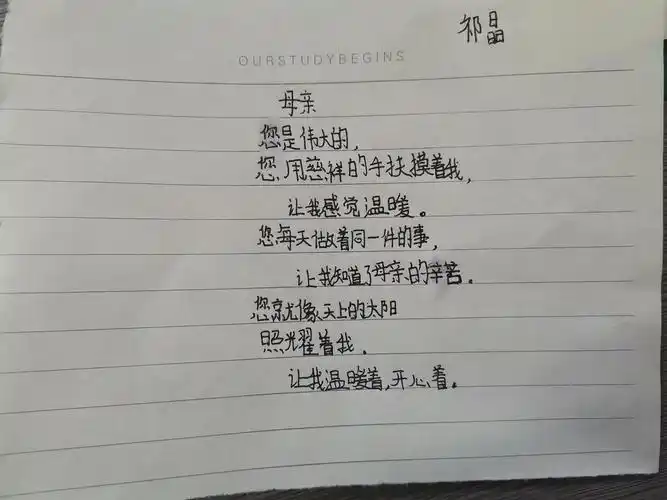 祁晶
OURSTUDYBEGINS
母亲
您是伟大的，
您用慈祥的手扶摸着我，
让我感觉温暖。
您每天做着同一件的事，
让我知道了母亲的辛苦。
您就像天上的太阳
照光耀着我．
让我温暖着，开心着。